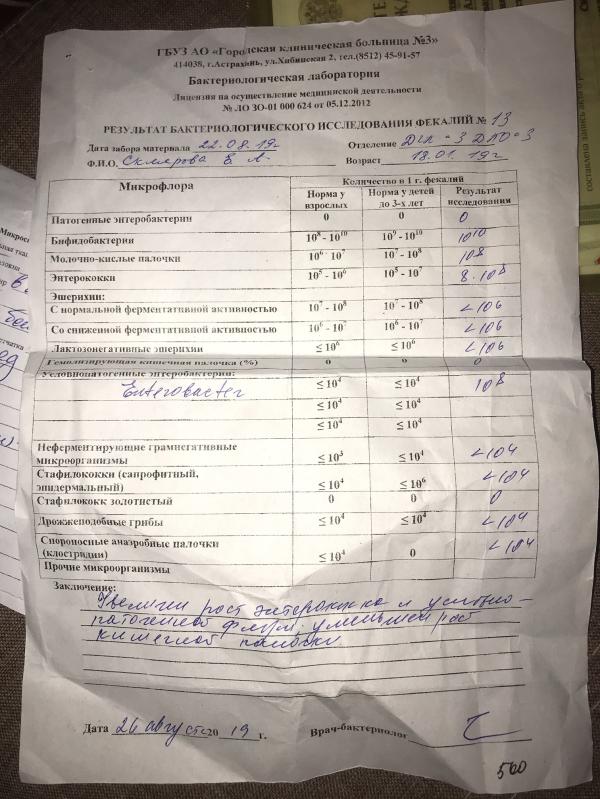 ГБУЗ АО «Городская клиническая больница №3»
414038, г.Астрахань, ул.Хибинская 2, тел.(8512) 45-91-57
Бактериологическая лаборатория
Лицензия на осуществление медицинской деятельности
№ ЛО ЗО-01 000 624 от 05.12.2012
РЕЗУЛЬТАТ БАКТЕРИОЛОГИЧЕСКОГО ИССЛЕДОВАНИЯ ФЕКАЛИЙ № 13
Дата забора материала 22.08.19г Отделение ДГП-3 ДПО-3
Ф.И.О. Склярова Е. А. Возраст 18.01.19г
Микрофлора Количество в 1 г. фекалий
Норма у взрослых Норма у детей до 3-х лет Результат исследования
Патогенные энтеробактерии 0 0 0
Бифидобактерии 10⁸ - 10¹⁰ 10⁹ - 10¹⁰ 10¹⁰
Молочно-кислые палочки 10⁶ 10⁷ 10⁷ - 10⁸ 10⁸
Энтерококки 10⁵ - 10⁶ 10⁵ - 10⁷ 8·10⁸
Эшерихии:
С нормальной ферментативной активностью 10⁷ - 10⁸ 10⁷ - 10⁸ <10⁶
Со сниженной ферментативной активностью 10⁶ - 10⁷ 10⁶ - 10⁷ <10⁶
Лактозонегативные эшерихии ≤ 10⁶ ≤ 10⁶ <10⁶
Гемолизирующая кишечная палочка (%) 0 0 0
Условнопатогенные энтеробактерии:
Enterobacter ≤ 10⁴ ≤ 10⁴ 10⁸
≤ 10⁴ ≤ 10⁴
≤ 10⁴ ≤ 10⁴
Неферментирующие грамнегативные
микроорганизмы ≤ 10³ ≤ 10⁴ <10⁴
Стафилококки (сапрофитный,
эпидермальный) ≤ 10⁴ ≤ 10⁶ <10⁴
Стафилококк золотистый 0 0 0
Дрожжеподобные грибы ≤ 10⁴ ≤ 10⁴ <10⁴
Спороносные анаэробные палочки
(клостридии) ≤ 10⁴ 0 <10⁴
Прочие микроорганизмы
Заключение:
Увеличен рост энтерококка и условно-
патогенной флоры, уменьшен рост
кишечной палочки
Дата 26 августа 2019 г. Врач-бактериолог
560